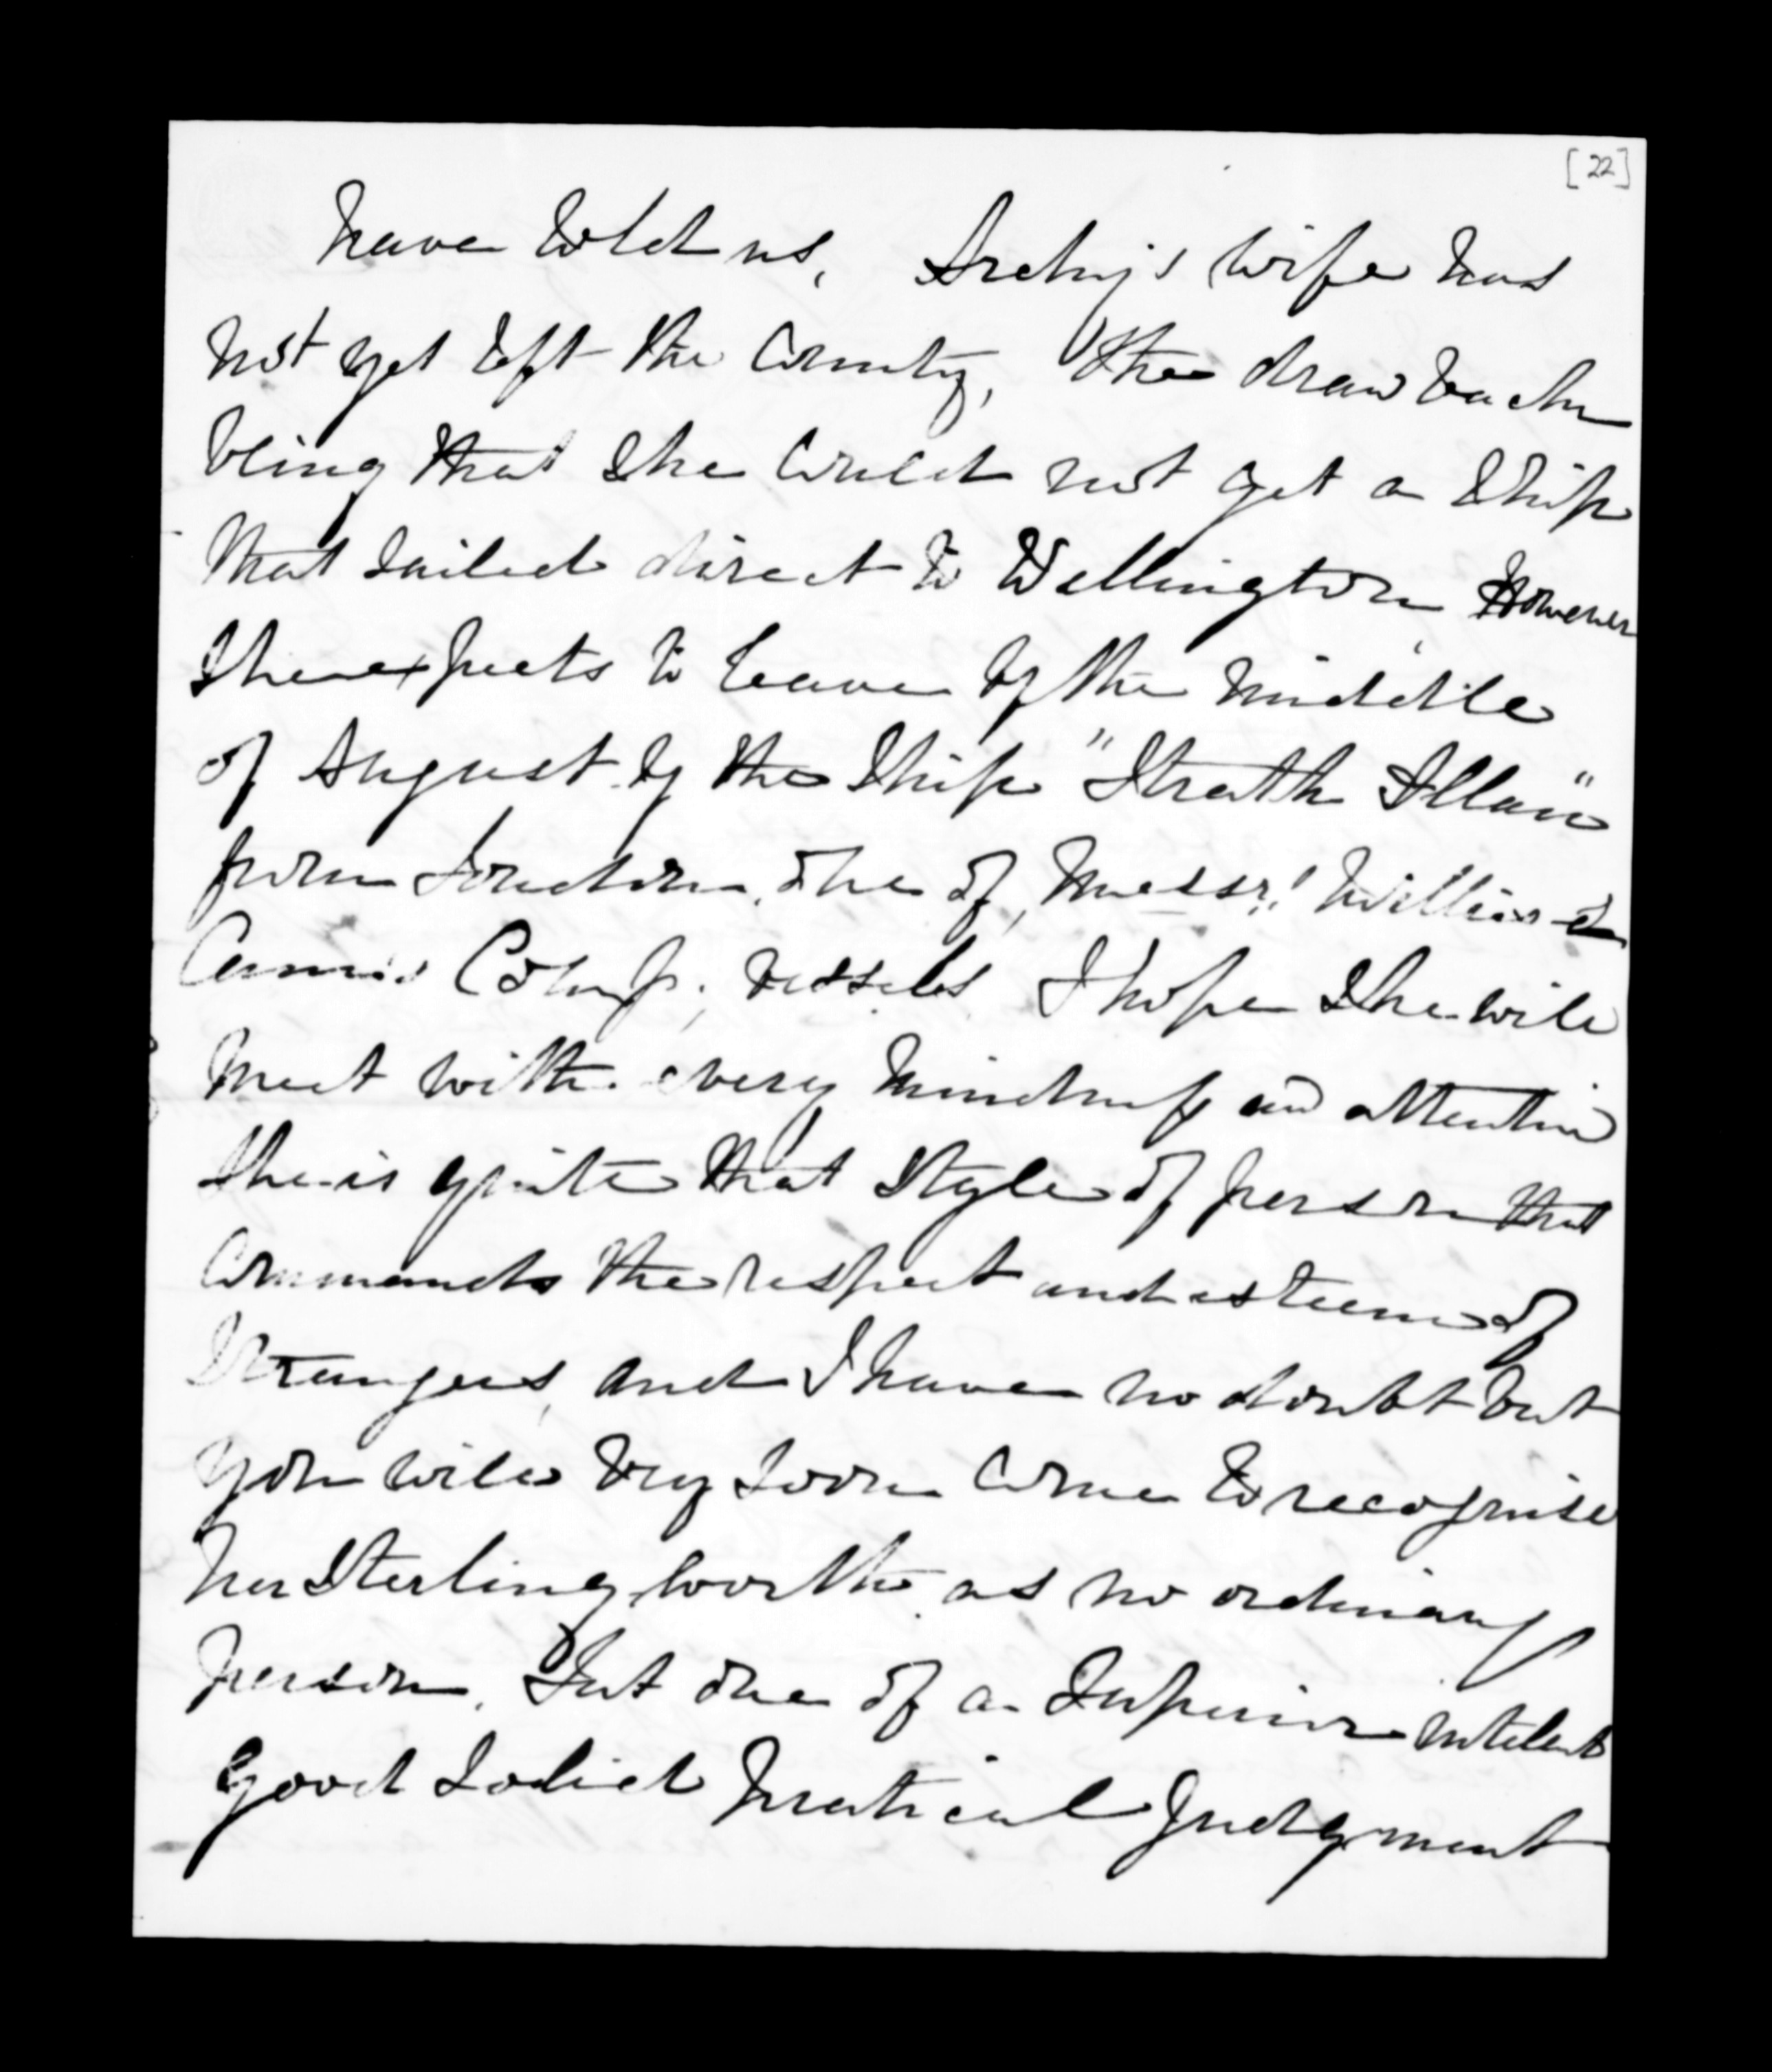 [22]
have told us, Archy's wife has
not yet left the County, the drawback
being that she could not get a Ship
that sailed direct to Wellington, However
She expects to leave by the middle
of August by the Ship "Strath Allan"
from London, one of, Messrs! Willis &
Comp; vessels I hope She will
meet with every kindness and attention
She is quite that Style of person that
Commands the respect and esteem of
Strangers, and I have no doubt but
you will very soon come to recognise
her Sterling worth, as no ordinary
person, But one of a Superior
good Solid Pratical Judgment